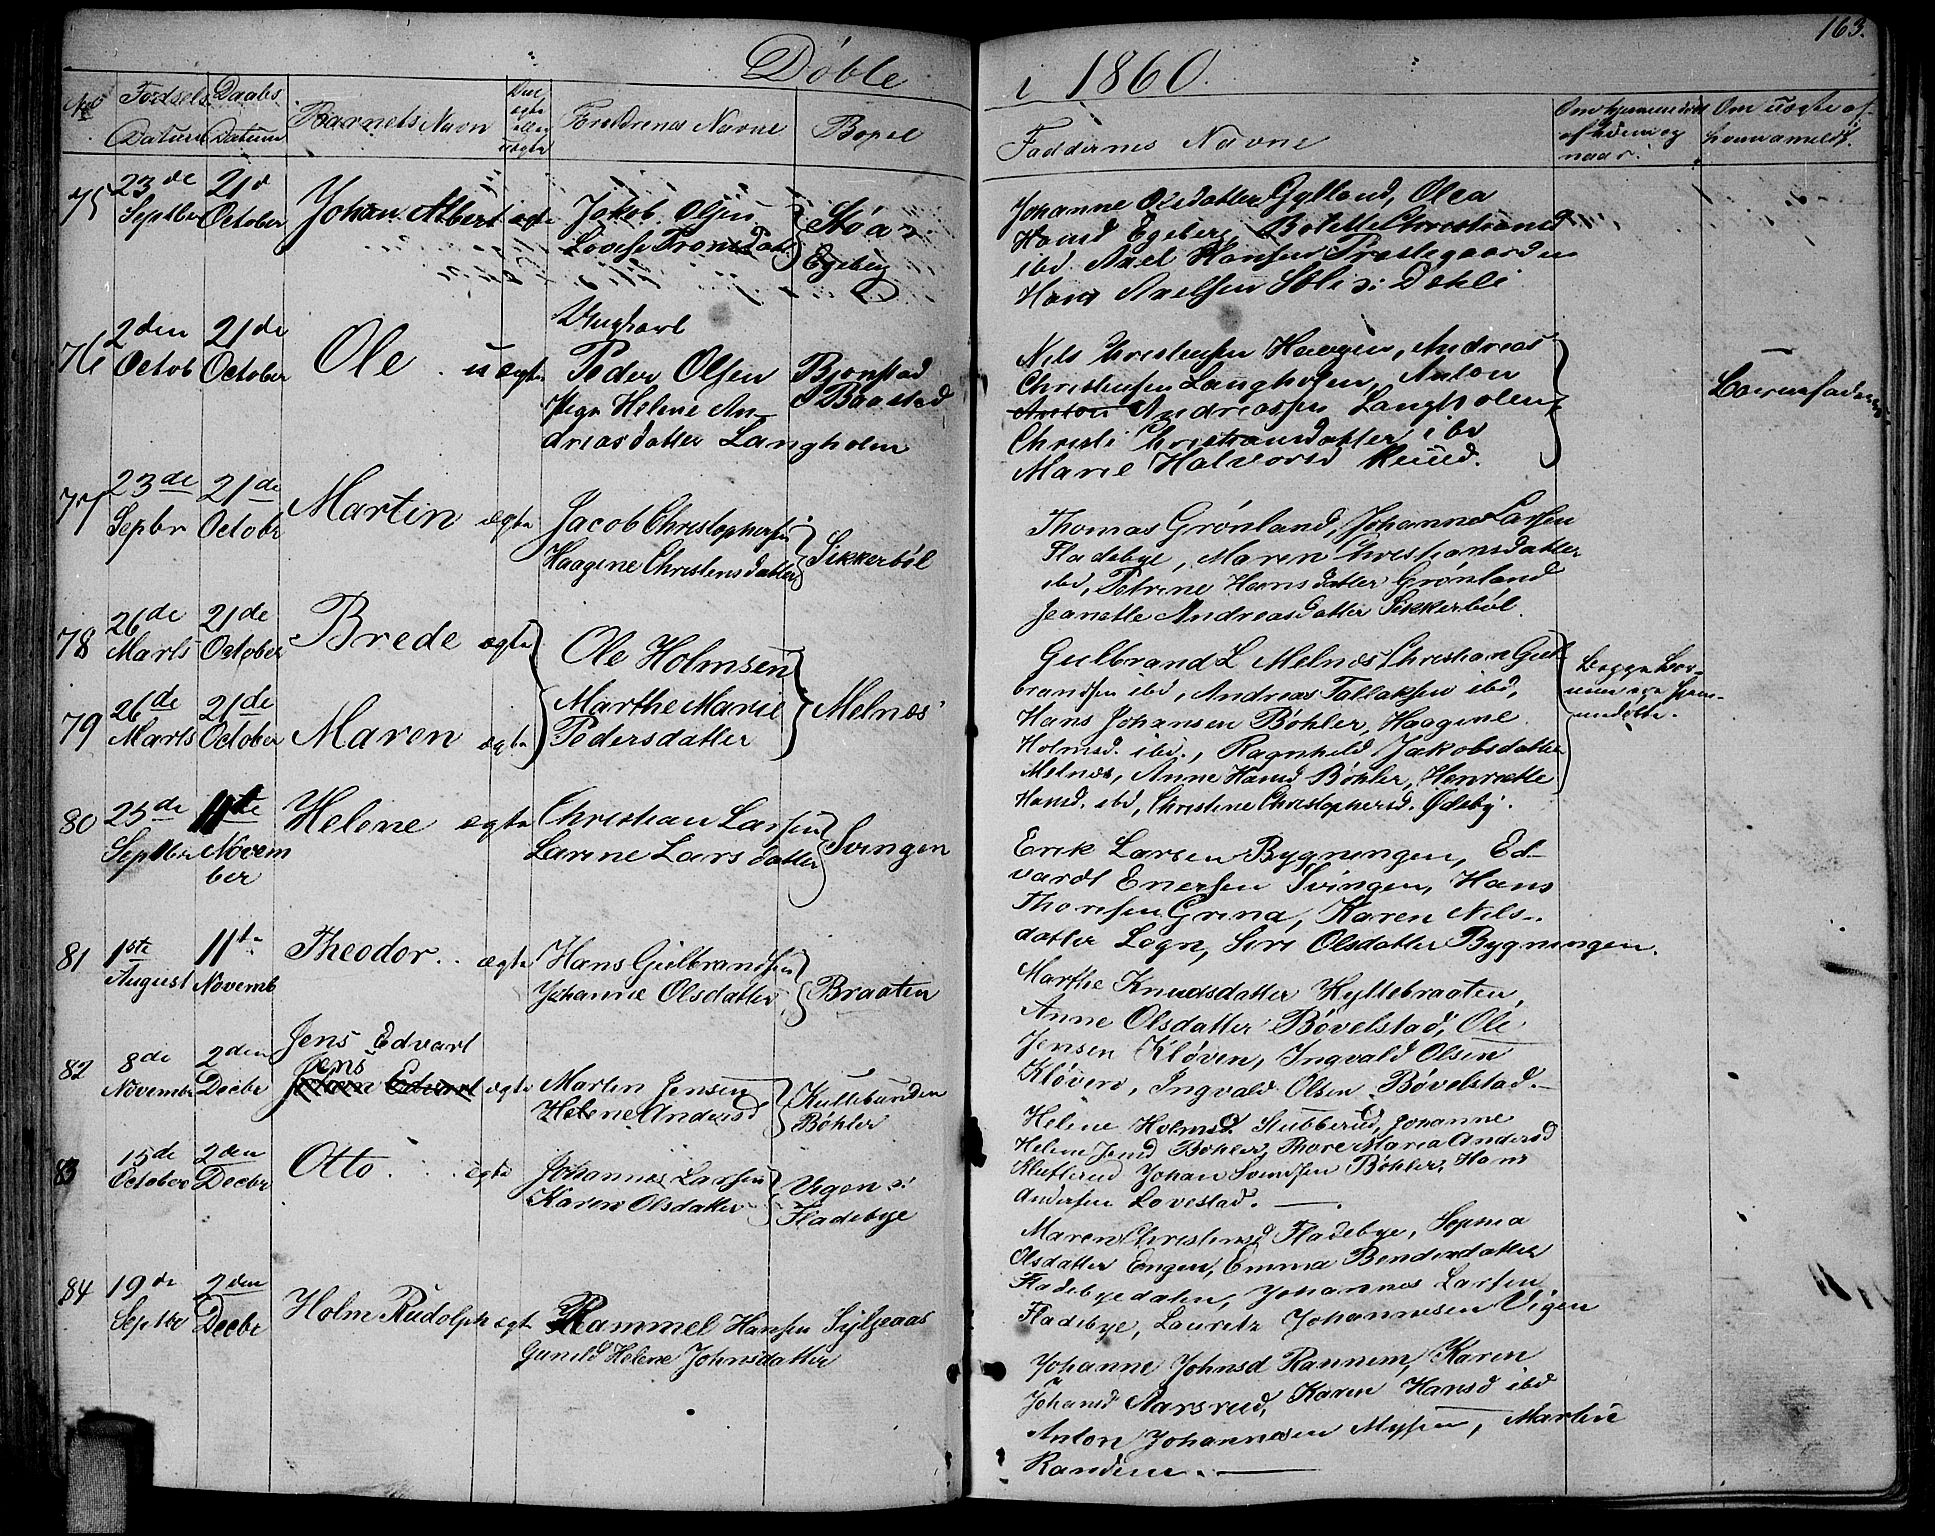 163.
Døbte i 1860.
No Fødsels Datum
Daabs Datum
Barnets Navn
egte eller uægte
Forældrenes Navne
Bopel
Faddernes Navne
Om hjemmedøbt af hvem og naar.
Om uægte af hvem anmeldt.
75 23de Septbr 21d October Johan Albert ægte
Jakob Olsen
Lovise Tronsdatt
Stöa
Egeberg
Johanne Olsdatter Gylland, Olea
Hansd Egeberg, Botille Christiansd
ibd. Axel Hansen Prestegaarden
Hans Axelsen
76 2den Octob 21de October Ole uægte
Ungkarl
Peder Olsen
Pige Helene An-
dreasdatter Langholen
Bjonstad
Baastad
Nels Christensen Haagen, Andreas
Christensen Langholen, Anton
Anton Andreassen Langholen
Christi Christiansdatter ibd
Marie Halvorsd Ruud.
Barnefaderen
77 23de Sepbr 21de Octobr Martin ægte
Jacob Christophersen
Haagine Christensdatter
Sikkerböl
Thomas Grönland, Johannes Larsen
Fladebye, Maren Christiansdatter
ibd, Petrine Hansdatter Grönland
Jeanette Andreasdatter Sikkerböl.
78 26de Marts 21de October Brede ægte
79 26de Marts 21de October Maren ægte
Ole Holmsen
Marthe Marie
Pedersdatter
Melnæs
Gulbrand L Melnæs Christian Gul-
brandsen ibd, Andreas Tollaksen ibd,
Hans Johansen Böhler, Haagine
Holmsd. ibd., Ragnhild Jakobsdatter
Melnæs, Anne Hansd Böhler, Henriette
Hansd. ibd, Christine Christophersd. Ödeby.
Begge Bør-
nene ere hjem-
medöbte.
80 25de Septbr 11te Novem
ber
Helene ægte
Christian Larsen
Larine Larsdatter
Svingen
Erik Larsen Bygningen, Ed-
vardt Enersen Svingen, Hans
Thoresen Grina, Karen Nils-
datter Logn, Siri Olsdatter Bygningen.
81 1ste August 11te Novemb Theodor ægte
Hans Gulbrandsen
Johanne Olsdatter
Braaten
Marthe Knudsdatter Hyttebraaten,
Anne Olsdatter Bövelstad, Ole
Jensen Klöven, Ingvald Olsen
Klöven, Ingvald Olsen Bövelstad.
82 8de Novembr 2den Decbr
Jens Edvart
Jens
Johan Edvart ægte
Martin Jensen
Helene Andersd
Kultebunden
Böhler
Helene Holmsd. Stubberud, Johanne
Helene Jensd Böhler, Thore Maria Andersd
Skofterud Johan Svendsen Böhler, Hans
Andersen Lovestad.
83 15de October 2den Decbr Otto ægte
Johannes Larsen
Karen Olsdatter
Vigen i
Fladebye
Maren Christensd Fladebye, Sophia
Olsdatter Engen, Emma Bendixdatter
Fladebyedalen, Johannes Larsen
Fladebye, Lauritz Johannesen Vigen
84 19de Septbr 2den Decbr Holm Rudolph ægte
Rammel Hansen Sylgeaas
Gunild Helene Johnsdatter
Johanne Johnsd Rannem, Karen
Johansd Aarsrud, Karen Hansd ibd
Anton Johannesen Mysen, Martin
Randem.